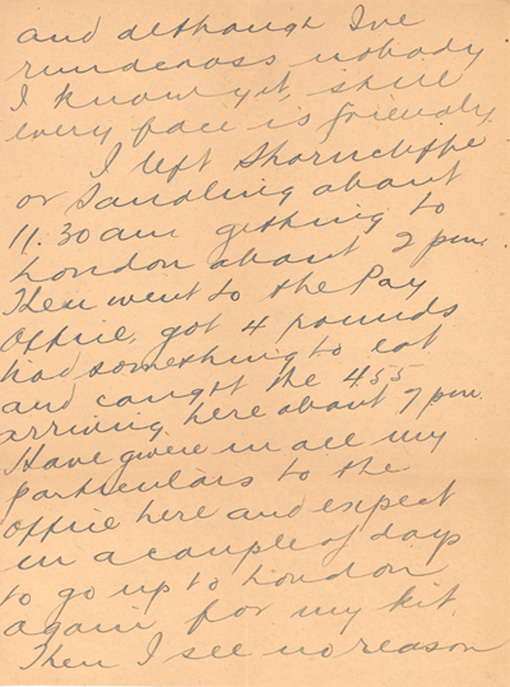 and although I've
runacross nobody
I know yet, still
every face is friendly.
I left Shorncliffe
or Sandling about
11.30 am getting to
London about 2 pm.
Then went to the Pay
Office, got 4 pounds
had something to eat
and caught the 4 55
arriving here about 7 pm.
Have given in all my
particulars to the
office here and expect
in a couple of days
to go up to London
again for my kit.
Then I see no reason